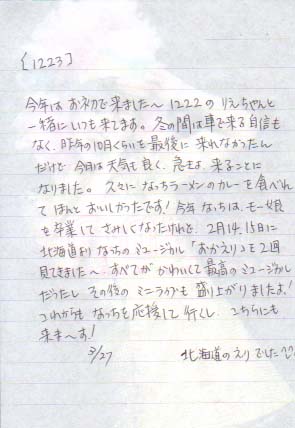 [1223]
今年はお初で来ました〜 1222の りえちゃんと
一緒にいつも来てます。冬の間は車で来る自信も
なく、昨年の10月くらいを最後に 来れなかったん
だけど 今日は 天気も良く、急きょ、来ることに
なりました。久々に なっちラーメンの カレーを食べれ
て ほんと おいしかったです! 今年 なっちは、モー娘
を卒業して さみしくなったけれど、2月14、15日に
北海道より なっちの ミュージカル「おかえり」を2回
見てきました〜 すべてが かわいくて 最高の ミュージカル
だったし その後の ミニライブも 盛り上がりましたよ!
これからも なっちを 応援して 行くし、こちらにも
来ま〜す!
3/27 北海道の えり でした